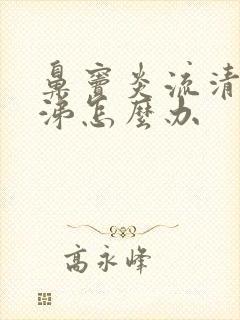 鼻窦炎流清
涕怎麼办
高永峰